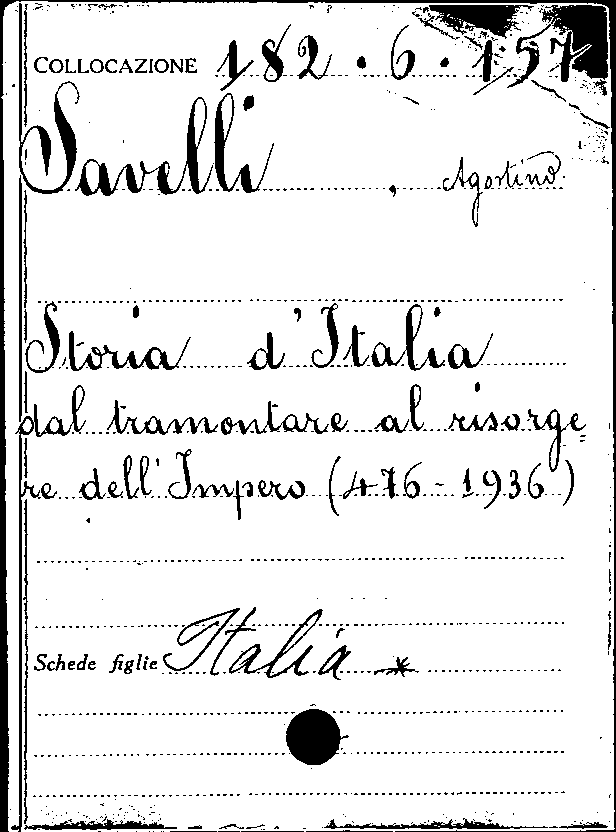 COLLOCAZIONE 182.6.157
Savelli, Agostino.
Storia d'Italia
dal tramontare al risorge=
re dell'Impero (476-1936)
Schede figlie Italia *